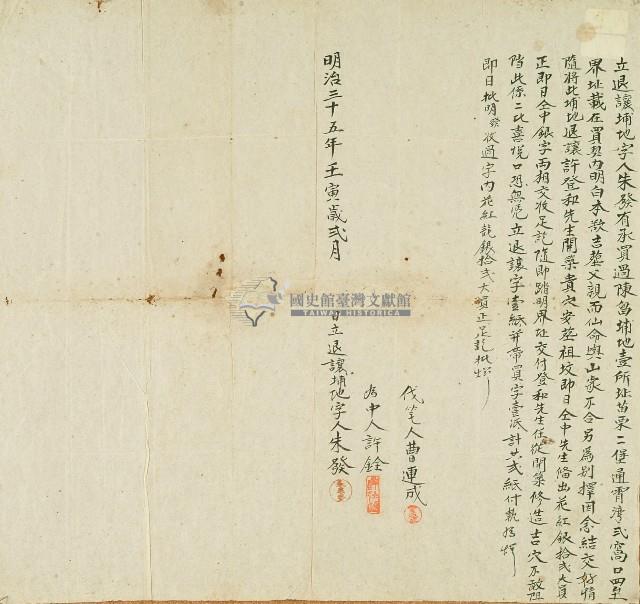 立退讓埔地字人朱發有承買過陳萬埔地壹所址苗栗二堡通霄湾弍窩口四至
界址載在買契內明白本欲吉塟父親而仙命與山家不合另為別擇因念結交好情
隨將此埔地退讓許登和先生開築貴穴安塟祖坟即日仝中先生備出花紅銀拾弍大員
正即日仝中銀字両相交收足訖隨即踏明界址交付登和先生任從開築修造吉穴不敢阻
陪此係二比喜悅口恐無凭立退讓字壹紙并帶買字壹紙計共弍紙付執為炤
即日批明實收過字內花紅龍銀拾弍大員正足訖批炤
代筆人曹連成
為中人許銓
明治三十五年壬寅歲弍月 日立退讓埔地字人朱發
國史館臺灣文獻館
TAIWAN HISTORICA